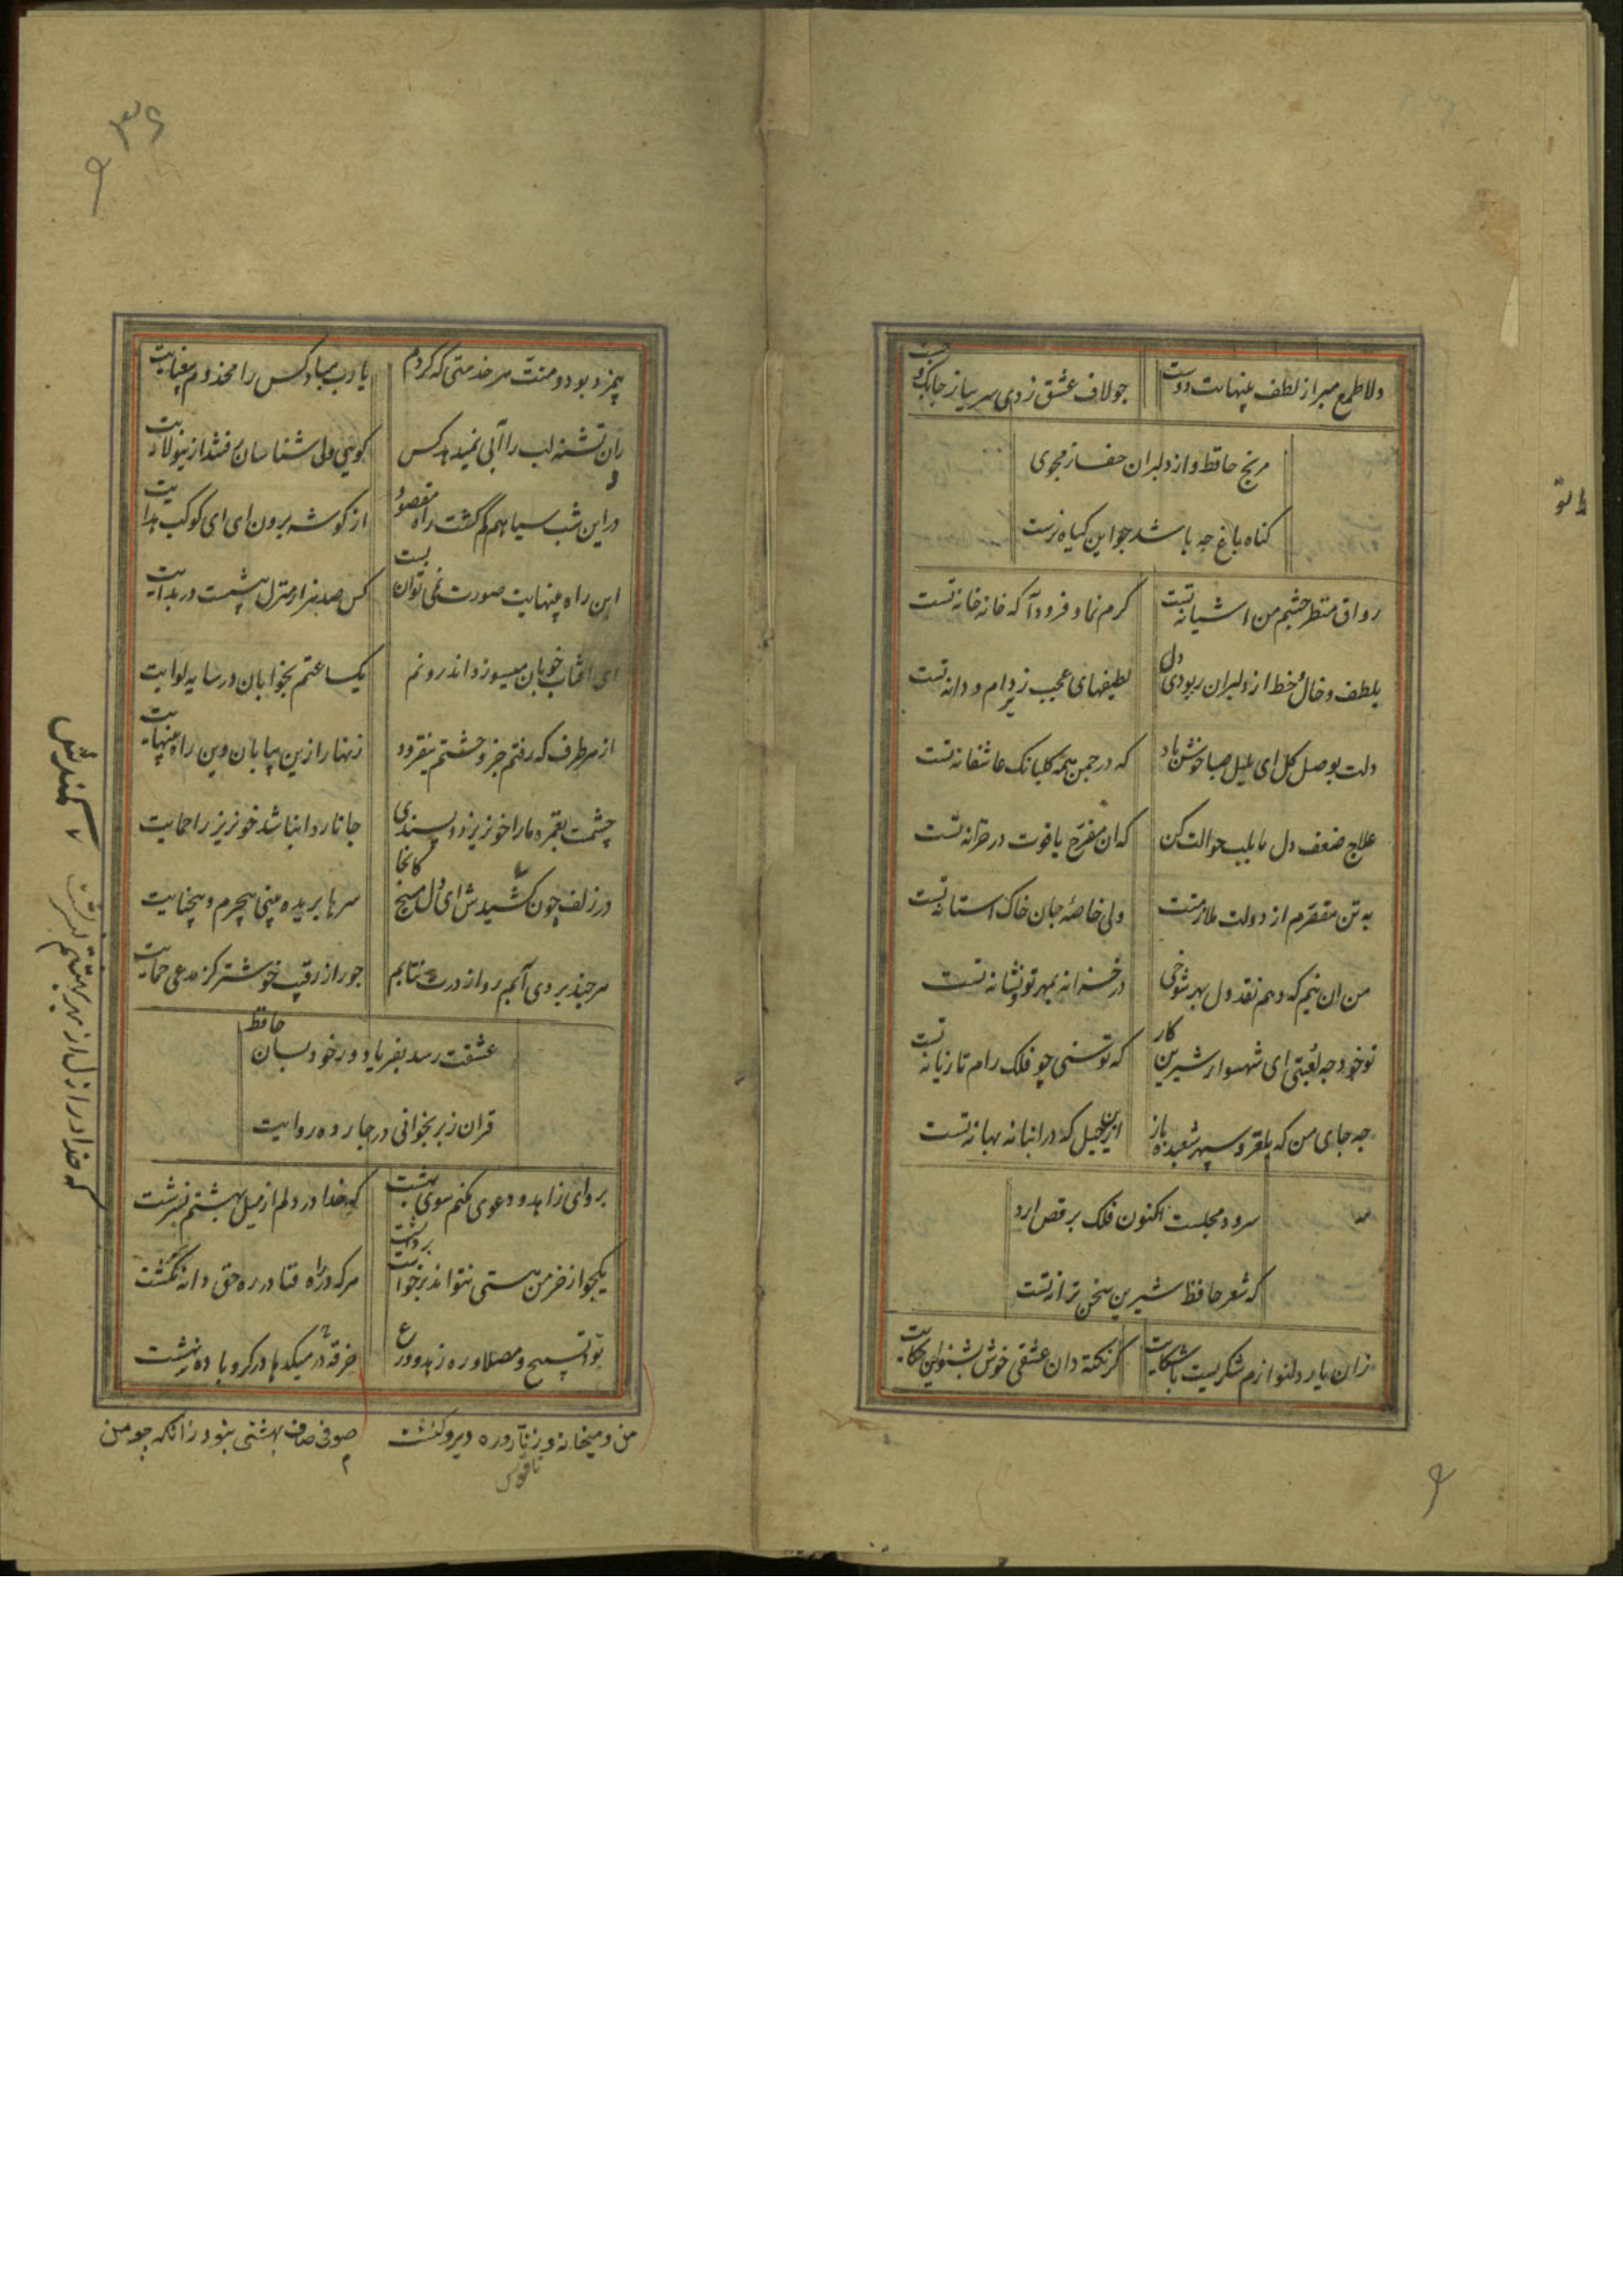 دلا طمع مبر از لطف بینهایت دوست
جو لاف عشق زدی سر بباز جابک و جست
مرنج حافظ و از دلبران حفاظ مجوی
کناه باغ جه باشد جو این کیاه نرست
رواق منظر جشم من اشیانه تست
کرم نما و فرود آ که خانه خانه تست
بلطف و خال و خط از دلبران ربودی دل
لطیفهای عجب زیر دام و دانه تست
دلت بوصل کل ای بلبل صبا خوش باد
که در جمن همه کلبانک عاشقانه تست
علاج ضعف دل ما بلب حوالت کن
که ان مفرح یاقوت در خزانه تست
به تن مقصرم از دولت ملازمتت
ولی خاصه جان خاک استانه تست
من ان نیم که دهم نقد دل بهر شوخی
در خزانه بمهر تو و نشانه تست
تو خود جه لعبتی ای شهسوار شیرین کار
که توسنی چو فلک رام تازیانه تست
جه جای من که بلغزد سپهر شعبده باز
ازین حیل که در انبانه بهانه تست
سرود مجلست اکنون فلک برقص ارد
که شعر حافظ شیرین سخن ترانه تست
زان یار دلنوازم شکریست با شکایت
کر نکته دان عشقی خوش بشنو این حکایت
۳۶
بیمزد بود و منت هر خدمتی که کردم
یا رب مباد کس را مخدوم بیعنایت
رندان تشنه لب را آبی نمیدهد کس
کویی ولی شناسان رفتند ازین ولایت
در این شب سیاهم گم گشت راه مقصود
از کوشه برون ای ای کوکب هدایت
این راه بینهایت صورت نمی توان بست
کس صد هزار منزل بیشست در بدایت
ای افتاب خوبان میسوزد اندرونم
یک ساعتم بخوابان در سایه لوایت
از هر طرف که رفتم جز وحشتم نیفزود
زنهار ازین بیابان وین راه بینهایت
چشمت بغمزه ما را خون ریزد و پسندی
جانا روا نباشد خونریز را حمایت
در زلف چون کمندش ای دل مپیچ کانجا
سرها بریده بینی بیجرم و بیجنایت
هر چند بردی آبم رو از درت نتابم
جور از رقیب خوشتر کز مدعی حمایت
عشقت رسد بفریاد ور خود بسان حافظ
قران ز بر بخوانی در چارده روایت
برو ای زاهد و دعوی مکنم سوی بهشت
که خدا در دلم از میل بهشتم نسرشت
یکجو از خرمن هستی نتواند برداشت
هر که در راه فنا در ره حق دانه نکشت
تو و تسبیح و مصلا و ره زهد و ورع
من و میخانه و زنار و ره دیر و کنشت
ناقوس
صوفی صاف بهشتی نبود زانکه چو من
خرقه در میکدها در کرو باده نهشت
کمندش
که خدا در ازل از بهر بهشتم نسرشت